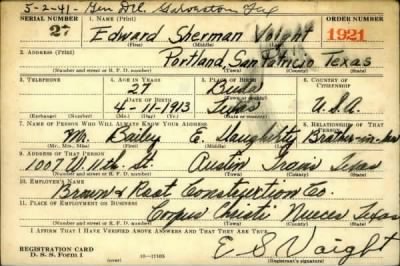 5-2-41- Gen Del. Galveston Tex
SERIAL NUMBER 1. NAME (Print) ORDER NUMBER
27 Edward Sherman Voight 1921
(First) (Middle) (Last)
2. ADDRESS (Print)
Portland, San Patricio Texas
(Number and street or R. F. D. number) (Town) (County) (State)
3. TELEPHONE 4. AGE IN YEARS 5. PLACE OF BIRTH 6. COUNTRY OF CITIZENSHIP
27 Buda
DATE OF BIRTH (Town or county)
4-11-1913 Texas U.S.A.
(Exchange) (Number) (Mo.) (Day) (Yr.) (State or country)
7. NAME OF PERSON WHO WILL ALWAYS KNOW YOUR ADDRESS 8. RELATIONSHIP OF THAT PERSON
Mr. Bailey E. Daughtety Brother-in-law
(Mr., Mrs., Miss) (First) (Middle) (Last)
9. ADDRESS OF THAT PERSON
1007 W. 11th St. Austin Travis Texas
(Number and street or R. F. D. number) (Town) (County) (State)
10. EMPLOYER'S NAME
Brown & Root Construction Co.
11. PLACE OF EMPLOYMENT OR BUSINESS
Corpus Christi Nueces Texas
(Number and street or R. F. D. number) (Town) (County) (State)
I AFFIRM THAT I HAVE VERIFIED ABOVE ANSWERS AND THAT THEY ARE TRUE.
REGISTRATION CARD
D. S. S. Form 1 16-17105 E. S. Voight
(Registrant's signature)